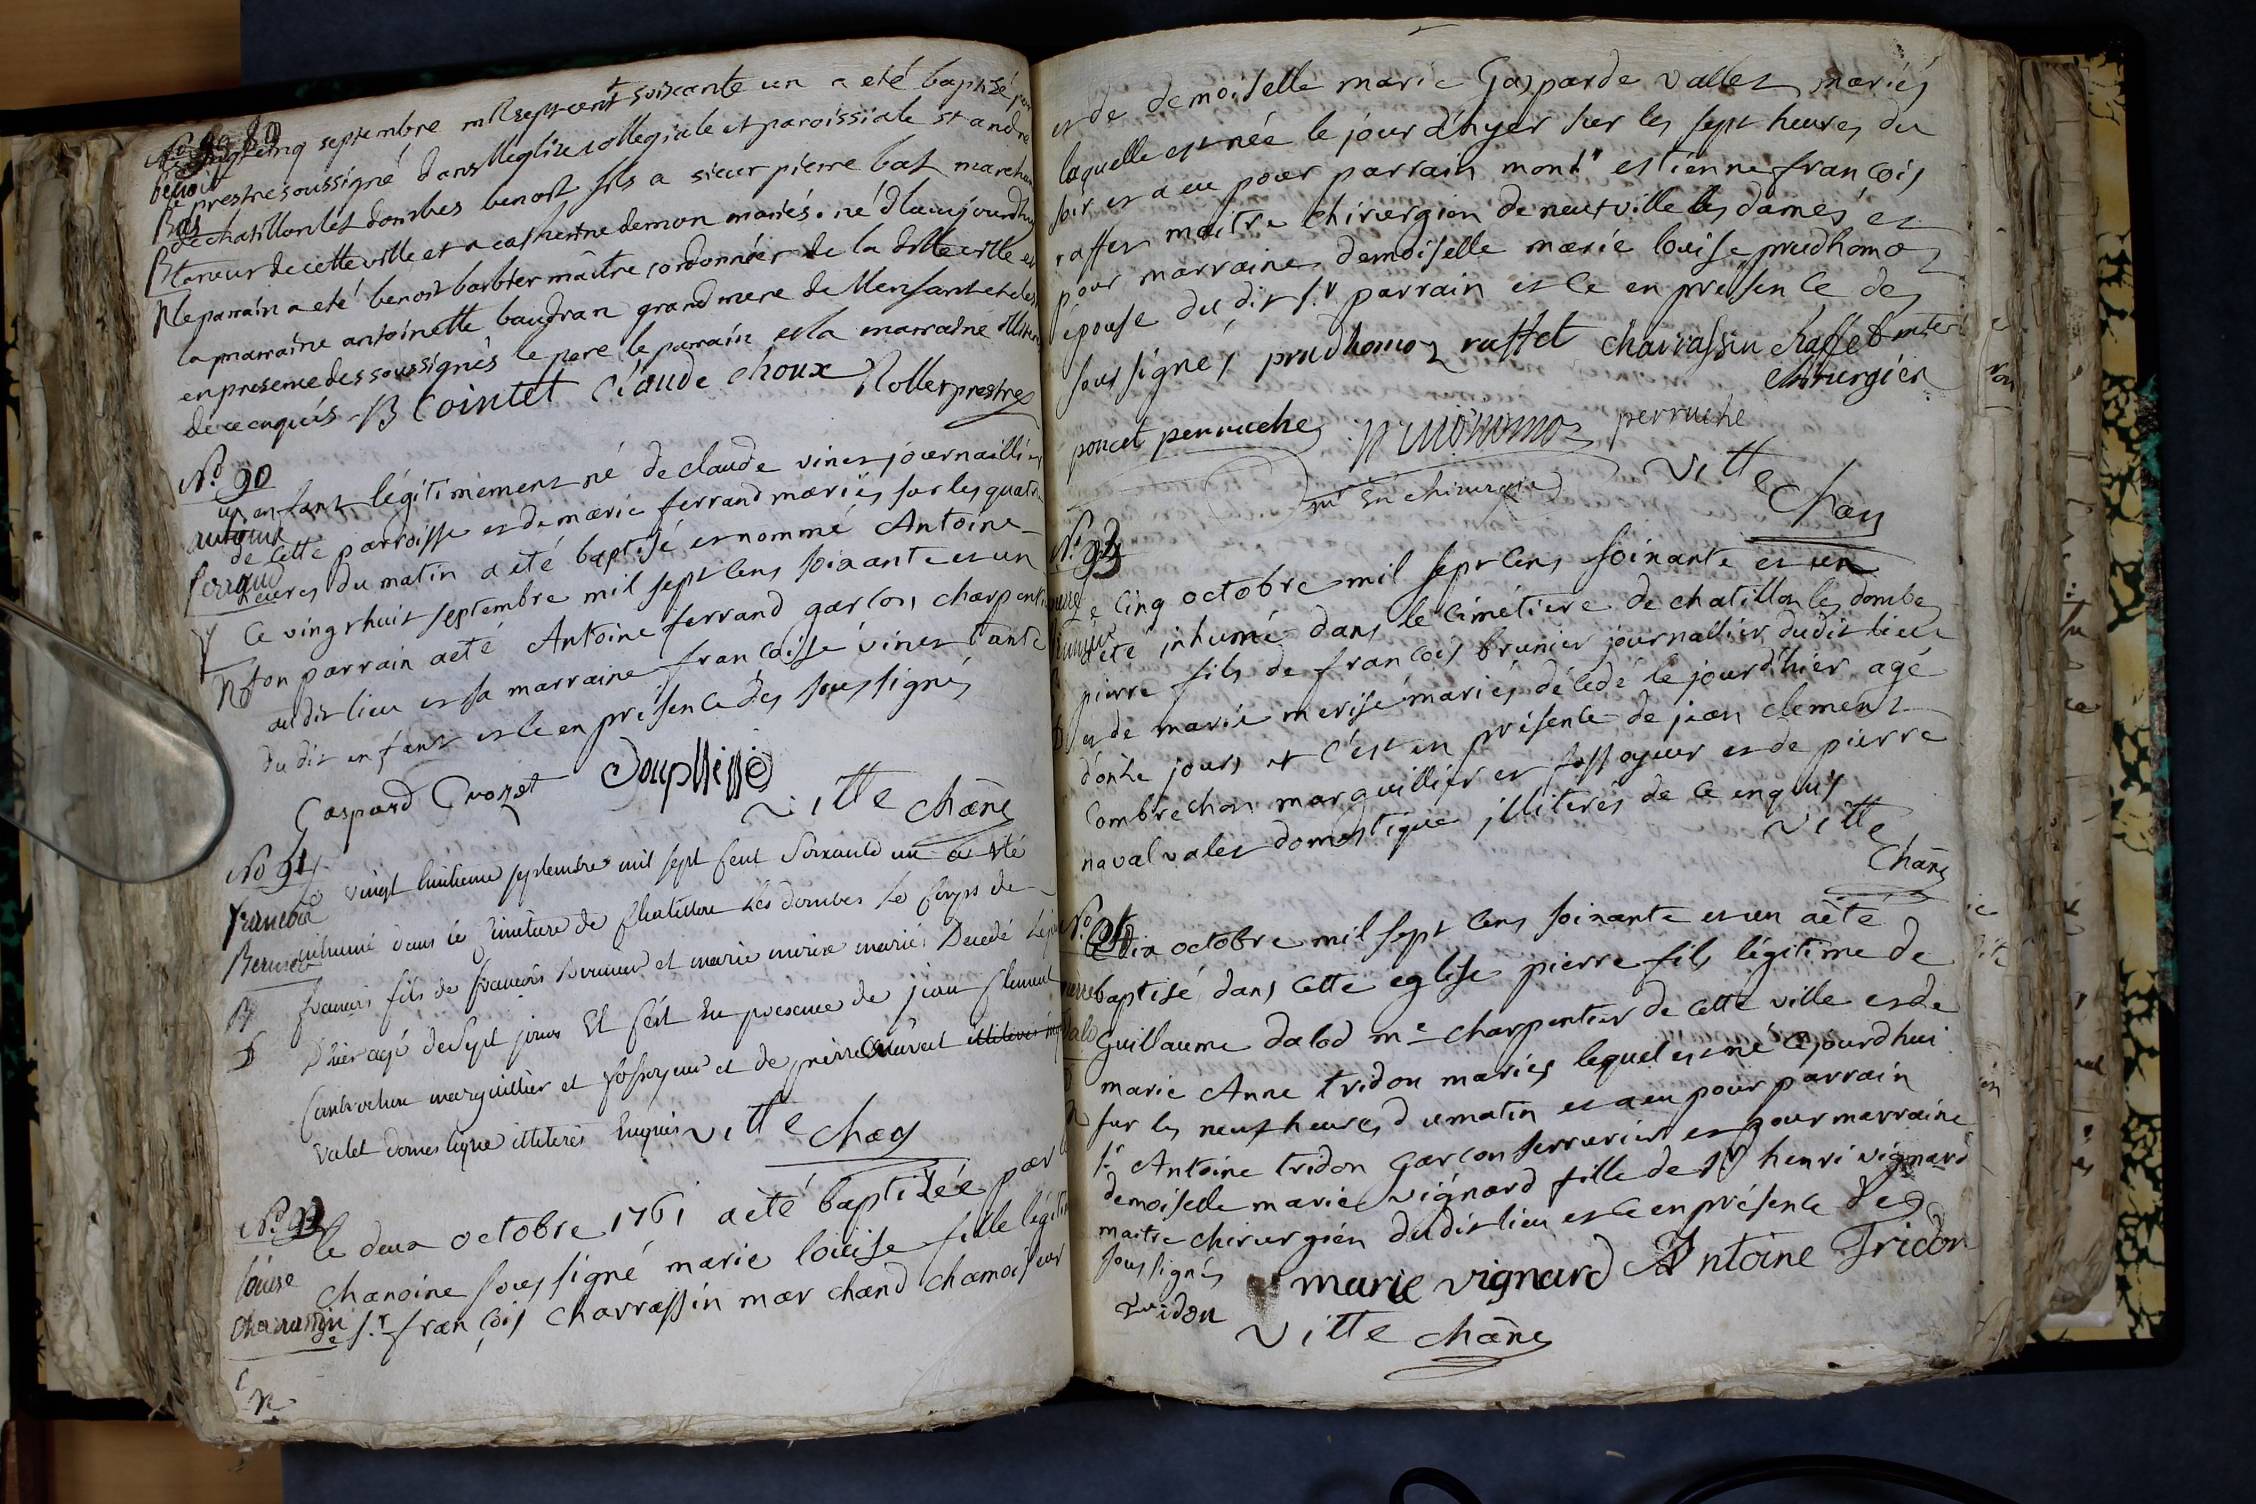 No 89
le vingt cinq septembre mil sept cent soixante un a eté baptisé par
benoit
prestre soussigné dans l'eglise collegiale et paroissiale st andre
Bas
de chatillon lés dombes benoit fils a sieur pierre bas marchand
taneur de cette ville et a catherine demon mariés. né d'aujourdhuy
le parrain a eté benoit barbier maître cordonnier de la ditte ville et
la marraine antoinette baudran grand mere de l'enfant et c'est
en presence des soussignés le pere le parrain et la marraine illiterés
de ce enquis B Cointet Claude choux Nollet prestre
No. 90
un enfant légitimement né de claude vinet journaillier
antoine
de cette parroisse et de marie ferrand mariés sur les quatre
heures du matin a été baptisé et nommé Antoine
Ce vingt huit septembre mil sept cens soixante et un
son parrain a eté Antoine ferrand garson charpentier
N
du dit lieu et sa marraine françoise vinet tante
du dit enfant et ce en présence des soussignés
Gaspard Grozet Souplissé
vitte chane
No 91
Le vingt huitieme septembre mil sept cent soixante un a été
francois
inhumé dans le cimetiere de Chatillon les dombes le corps de
francois fils de francois brunier et marie merise mariés Decedé le jour
D
D'hier agé de sept jours Et c'est En presence de jean Clement
Combrechon marguillier et fossoyeur et de pierre naval illiteres
valet domestique illiterés Enquis vitte chae
No. 92
le deux octobre 1761 a eté baptizée par le
Louise
chanoine soussigné marie louise fille légitime
Charrassin
de sr. françois charrassin marchand chamoiseur
N
et de demoiselle marie Gasparde vallet mariés
laquelle est née le jour d'hyer sur les sept heures du
soir et a eu pour parrain monsr estienne françois
raffet maitre chirurgien de neufville les dames et
pour marraine demoiselle marie louise prudhomoz
épouse du dit sr parrain et ce en présence des
soussignés prudhomoz raffet charrassin Raffet mtre
chirurgien
poncet perruche prudhomoz perruche
me En chirurgie vitte
Chan
No. 93
Le Cinq octobre mil sept cens soixante et un
a été inhumé dans le cimétiere de chatillon les dombes
pierre fils de françois brunier journallier du dit lieu
et de marie merise mariés décédé le jour d'hier agé
D
d'onze jours et c'est en présence de jean clement
Combrechon marguillier et fossoyeur et de pierre
naval valet domestique illiterés de ce enquis
vitte
Chane
No. 94
Le dix octobre mil sept cens soixante et un a été
pierre
baptisé dans cette eglise pierre fils légitime de
Dalod
Guillaume dalod me charpentier de cette ville et de
marie Anne tridon mariés lequel est né ce jourdhui
sur les neuf heures du matin et a eu pour parrain
sr. Antoine tridon garcon serrurier et pour marraine
demoiselle marie vignard fille de sr henri vignard
maitre chirurgién du dit lieu et ce en présence des
soussignés marie vignard Antoine Tridon
tridon
vitte chane